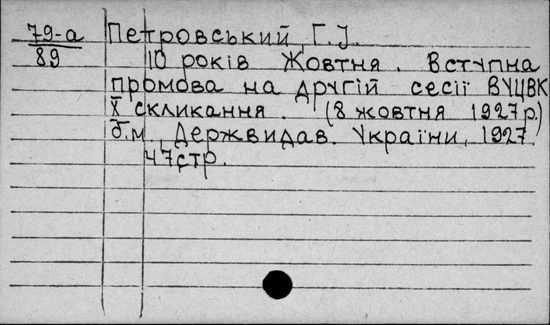 79-а Петровський Г.І.
89 10 років Жовтня. Вступна
промова на другій сесії ВУЦВК
X скликання. (8 жовтня 1927 р.)
б.м., Держвидав. України, 1927.
47 стр.